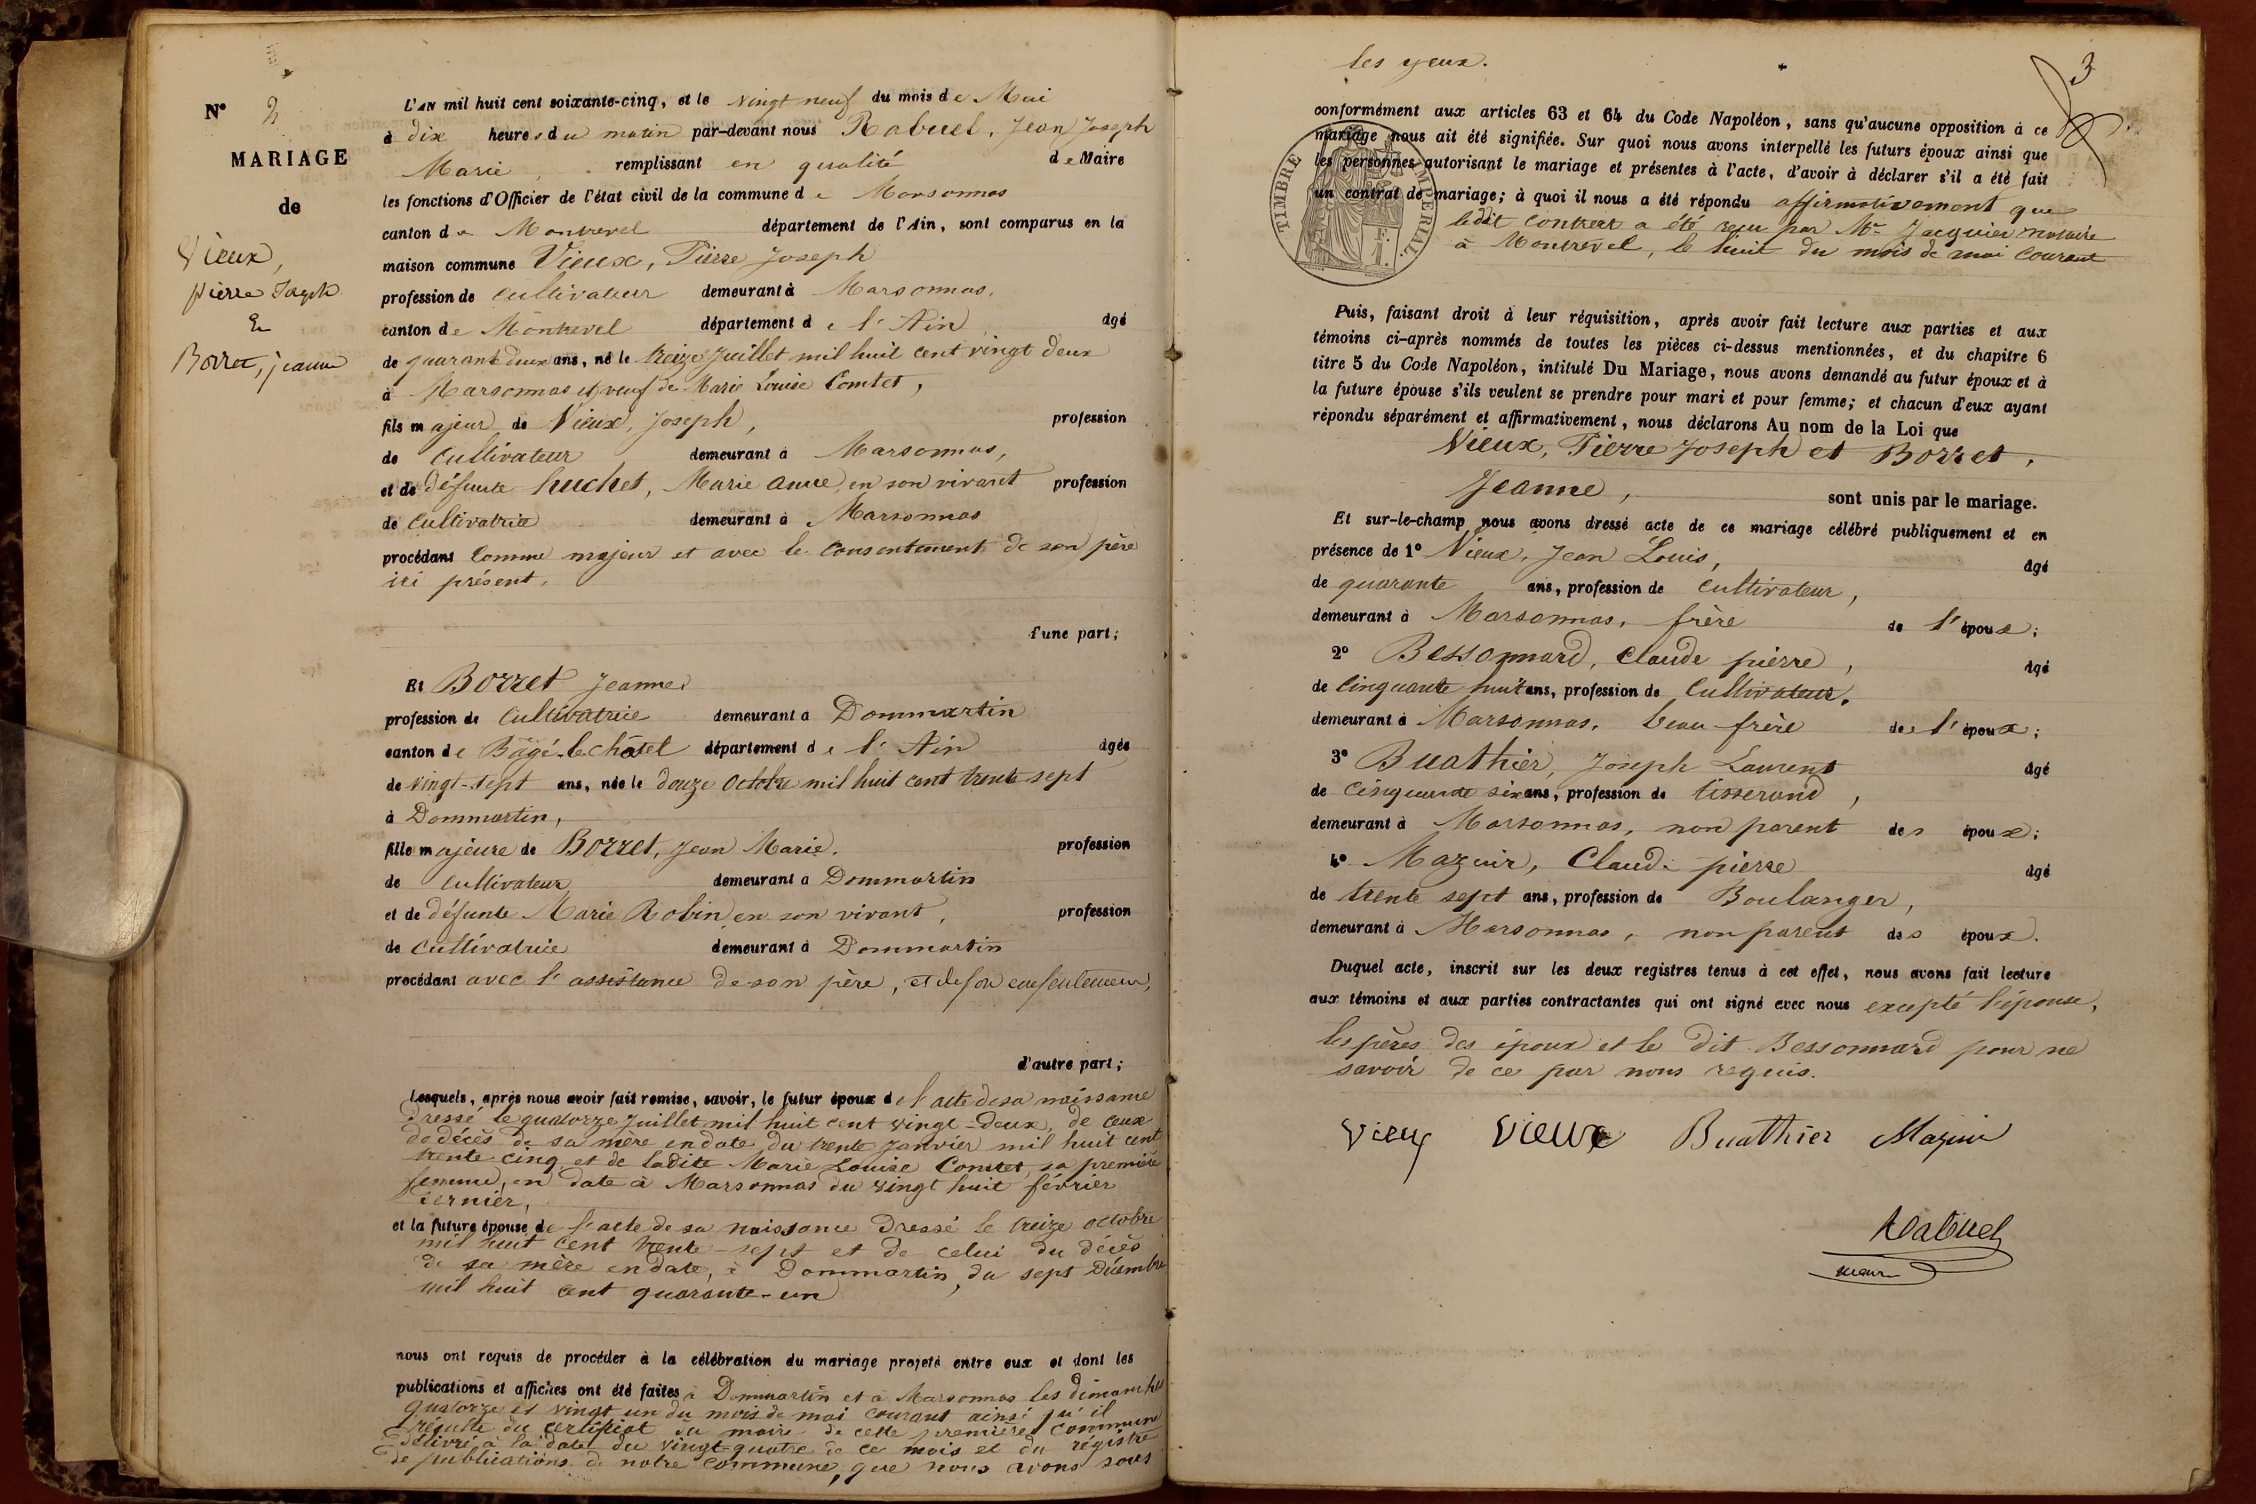 N° 2
MARIAGE
de
Vieux,
pierre Joseph
Et
Borret, jeanne
L'AN mil huit cent soixante-cinq, et le vingt neuf du mois de Mai
à dix heures du matin par-devant nous Rabuel, Jean Joseph
Marie, remplissant en qualité de Maire
les fonctions d'Officier de l'état civil de la commune de Marsonnas
canton de Montrevel département de l'Ain, sont comparus en la
maison commune Vieux, Pierre Joseph
profession de Cultivateur demeurant à Marsonnas,
canton de Montrevel département de l'Ain âgé
de quarante deux ans, né le treize Juillet mil huit cent vingt deux
à Marsonnas et veuf de Marie Louise Comtet,
fils majeur de Vieux, Joseph, profession
de Cultivateur demeurant à Marsonnas,
et de défunte huchet, Marie Anne en son vivant profession
de Cultivatrice demeurant à Marsonnas
procédant Comme majeur et avec le Consentement de son père
ici présent,
d'une part;
Et Borret Jeanne
profession de Cultivatrice demeurant à Dommartin
canton de Bâgé-le-Châtel département de l'Ain âgée
de vingt-sept ans, née le douze Octobre mil huit cent trente sept
à Dommartin,
fille majeure de Borret, Jean Marie. profession
de Cultivateur demeurant à Dommartin
et de défunte Marie Robin en son vivant, profession
de Cultivatrice demeurant à Dommartin
procédant avec l'assistance de son père, et de son consentement,
d'autre part;
Lesquels, après nous avoir fait remise, savoir, le futur époux de l'acte de sa naissance
dressé le quatorze Juillet mil huit cent vingt-deux, de ceux
de décès de sa mère en date du trente Janvier mil huit cent
trente cinq et de ladite Marie Louise Comtet, sa première
femme, en date à Marsonnas du vingt huit février
dernier,
et la future épouse de l'acte de sa naissance dressé le treize octobre
mil huit cent trente-sept et de celui du décès
de sa mère en date, à Dommartin, du sept Décembre
mil huit cent quarante-un
nous ont requis de procéder à la célébration du mariage projeté entre eux et dont les
publications et affiches ont été faites à Dommartin et à Marsonnas les dimanches
quatorze et vingt un du mois de mai courant ainsi qu'il
résulte du certificat du maire de cette première commune
délivré à la date du vingt-quatre de ce mois et du régistre
de publications de notre commune, que nous avons sous
les yeux.
3
conformément aux articles 63 et 64 du Code Napoléon, sans qu'aucune opposition à ce
mariage nous ait été signifiée. Sur quoi nous avons interpellé les futurs époux ainsi que
les personnes autorisant le mariage et présentes à l'acte, d'avoir à déclarer s'il a été fait
un contrat de mariage; à quoi il nous a été répondu affirmativement que
ledit Contrat a été reçu par Me Jacquier notaire
à Montrevel, le huit du mois de mai Courant
TIMBRE IMPERIAL
Puis, faisant droit à leur réquisition, après avoir fait lecture aux parties et aux
témoins ci-après nommés de toutes les pièces ci-dessus mentionnées, et du chapitre 6
titre 5 du Code Napoléon, intitulé Du Mariage, nous avons demandé au futur époux et à
la future épouse s'ils veulent se prendre pour mari et pour femme; et chacun d'eux ayant
répondu séparément et affirmativement, nous déclarons Au nom de la Loi que
Vieux, Pierre Joseph et Borret,
Jeanne, sont unis par le mariage.
Et sur-le-champ nous avons dressé acte de ce mariage célébré publiquement et en
présence de 1° Vieux, Jean Louis, âgé
de quarante ans, profession de Cultivateur,
demeurant à Marsonnas, frère de l'époux;
2° Bessonnard, Claude pierre, âgé
de Cinquante huit ans, profession de Cultivateur,
demeurant à Marsonnas, beau-frère de l'époux;
3° Buathier, Joseph Laurent âgé
de Cinquante six ans, profession de tisserand,
demeurant à Marsonnas, non parent des époux;
4° Mazuir, Claude pierre âgé
de trente sept ans, profession de Boulanger,
demeurant à Marsonnas, non parent des époux.
Duquel acte, inscrit sur les deux registres tenus à cet effet, nous avons fait lecture
aux témoins et aux parties contractantes qui ont signé avec nous excepté l'épouse,
les pères des époux et le dit Bessonnard pour ne
savoir de ce par nous requis.
Vieux Vieux Buathier Mazuir
Rabuel
maire